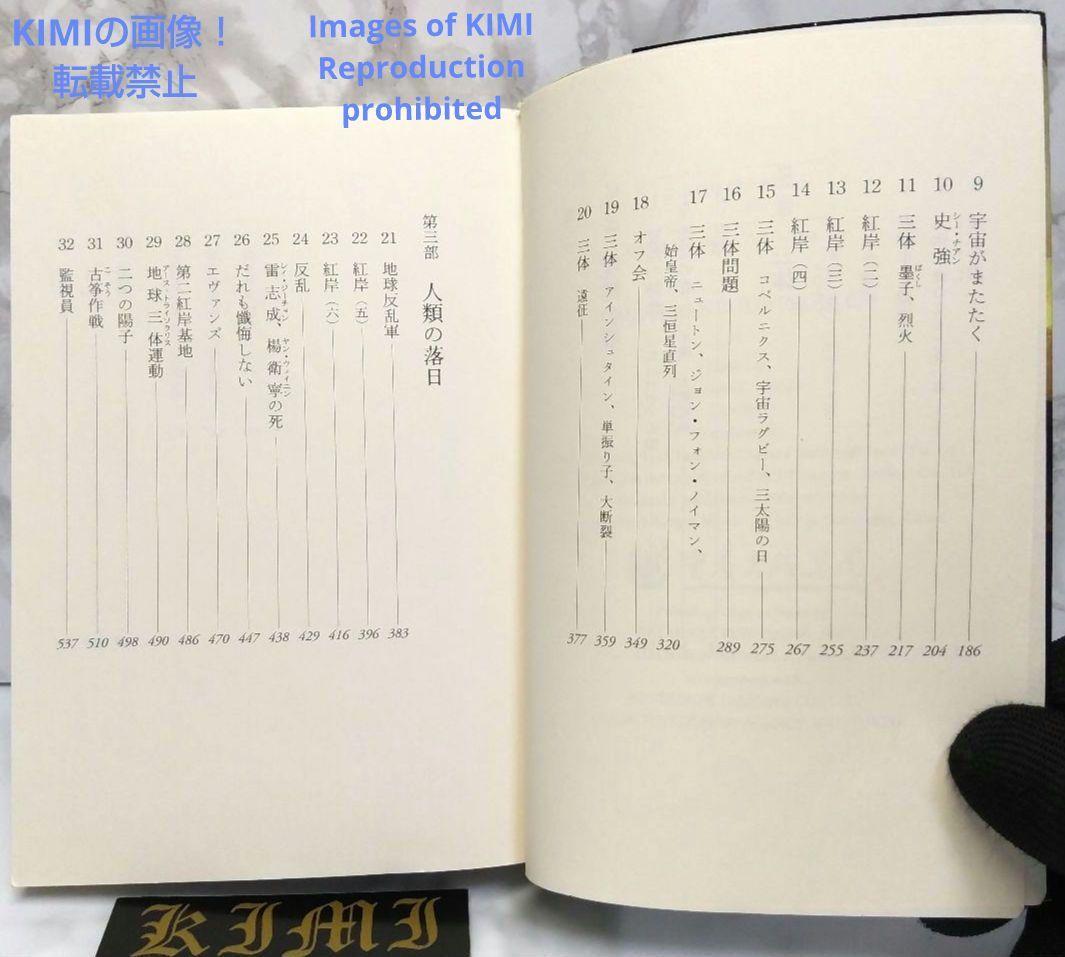 KIMIの画像！
転載禁止
Images of KIMI
Reproduction
prohibited
9 宇宙がまたたく 186
10 史強 シー・チアン 204
11 三体 墨子、烈火 ぼくし 217
12 紅岸（二） 237
13 紅岸（三） 255
14 紅岸（四） 267
15 三体 コペルニクス、宇宙ラグビー、三太陽の日 275
16 三体問題 289
17 三体 ニュートン、ジョン・フォン・ノイマン、
始皇帝、三恒星直列 320
18 オフ会 349
19 三体 アインシュタイン、単振り子、大断裂 359
20 三体 遠征 377
第三部 人類の落日
21 地球反乱軍 383
22 紅岸（五） 396
23 紅岸（六） 416
24 反乱 429
25 雷志成、楊衛寧の死 レイ・ジーチョン ヤン・ウェイニン 438
26 だれも懺悔しない 447
27 エヴァンズ 470
28 第二紅岸基地 486
29 地球三体運動 アース・トライソラリス 490
30 二つの陽子 498
31 古筝作戦 こそう 510
32 監視員 537
KIMI